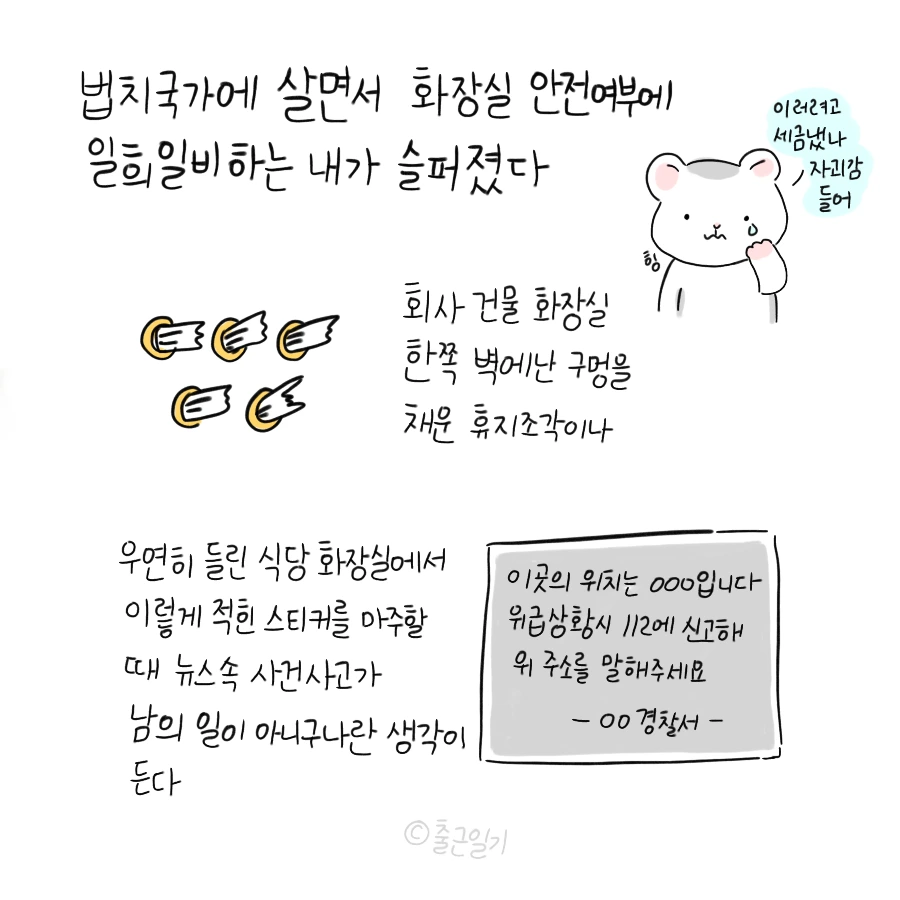 법치국가에 살면서 화장실 안전여부에
일희일비하는 내가 슬퍼졌다
이러려고
세금냈나
자괴감
들어
힝
회사 건물 화장실
한쪽 벽에난 구멍을
채운 휴지조각이나
우연히 들린 식당 화장실에서
이렇게 적힌 스티커를 마주할
때 뉴스속 사건사고가
남의 일이 아니구나란 생각이
든다
이곳의 위치는 000입니다
위급상황시 112에 신고해
위 주소를 말해주세요
- 00경찰서 -
©출근일기